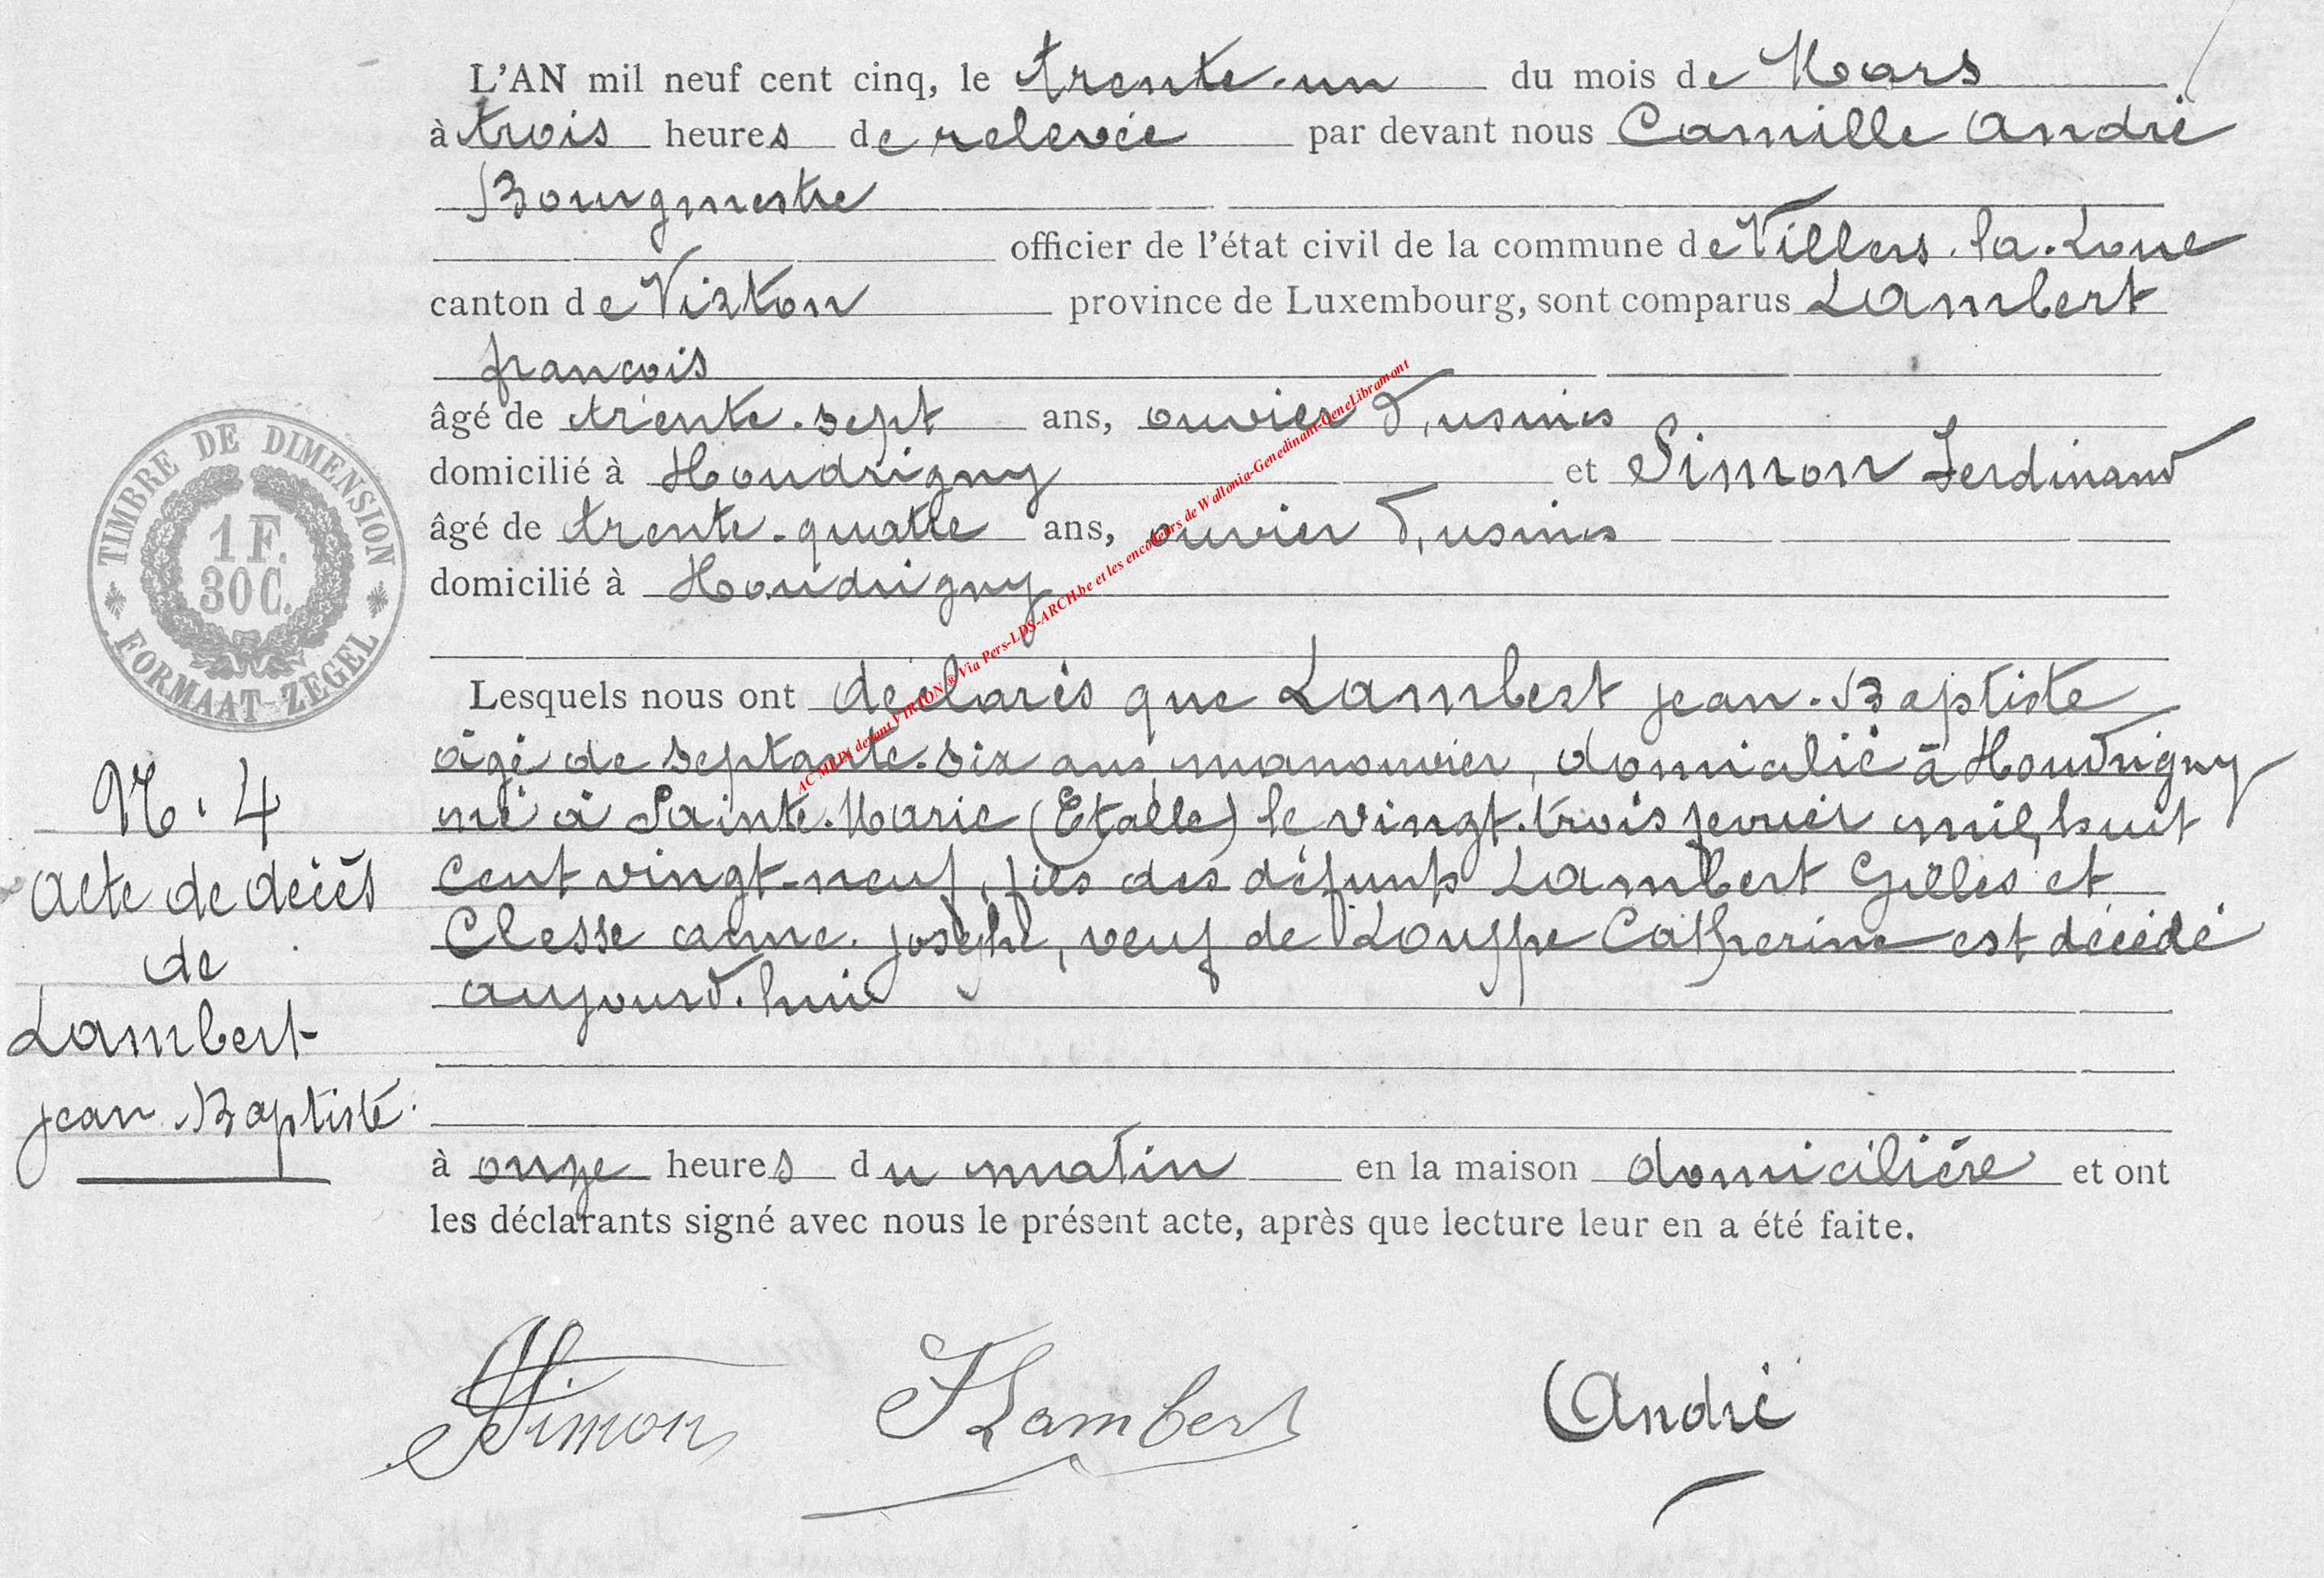 L'AN mil neuf cent cinq, le trente-un du mois de Mars
à trois heures de relevée par devant nous Camille André
Bourgmestre
officier de l'état civil de la commune de Villers-la-Loue
canton de Virton province de Luxembourg, sont comparus Lambert
françois
âgé de trente-sept ans, ouvrier d'usines
domicilié à Houdrigny et Simon Ferdinand
âgé de trente-quatre ans, ouvrier d'usines
domicilié à Houdrigny
Lesquels nous ont déclarés que Lambert jean-Baptiste
âgé de septante-six ans, manouvrier, domicilié à Houdrigny
né à Sainte-Marie (Etalle) le vingt-trois fevrier mil huit
cent vingt-neuf, fils des défunts Lambert Gilles et
Clesse anne-josephe, veuf de Louppe Catherine est décédé
aujourd'hui
à onze heures du matin en la maison domicilière et ont
les déclarants signé avec nous le présent acte, après que lecture leur en a été faite.
TIMBRE DE DIMENSION
1 F.
30 C.
FORMAAT-ZEGEL
N. 4
Acte de décès
de
Lambert
jean-Baptiste
AC MEIX devant VIRTON ® Via Pers-LDS-ARCH.be et les encodeurs de Wallonia-Genedinant-GeneLibramont
Simon FLambert André